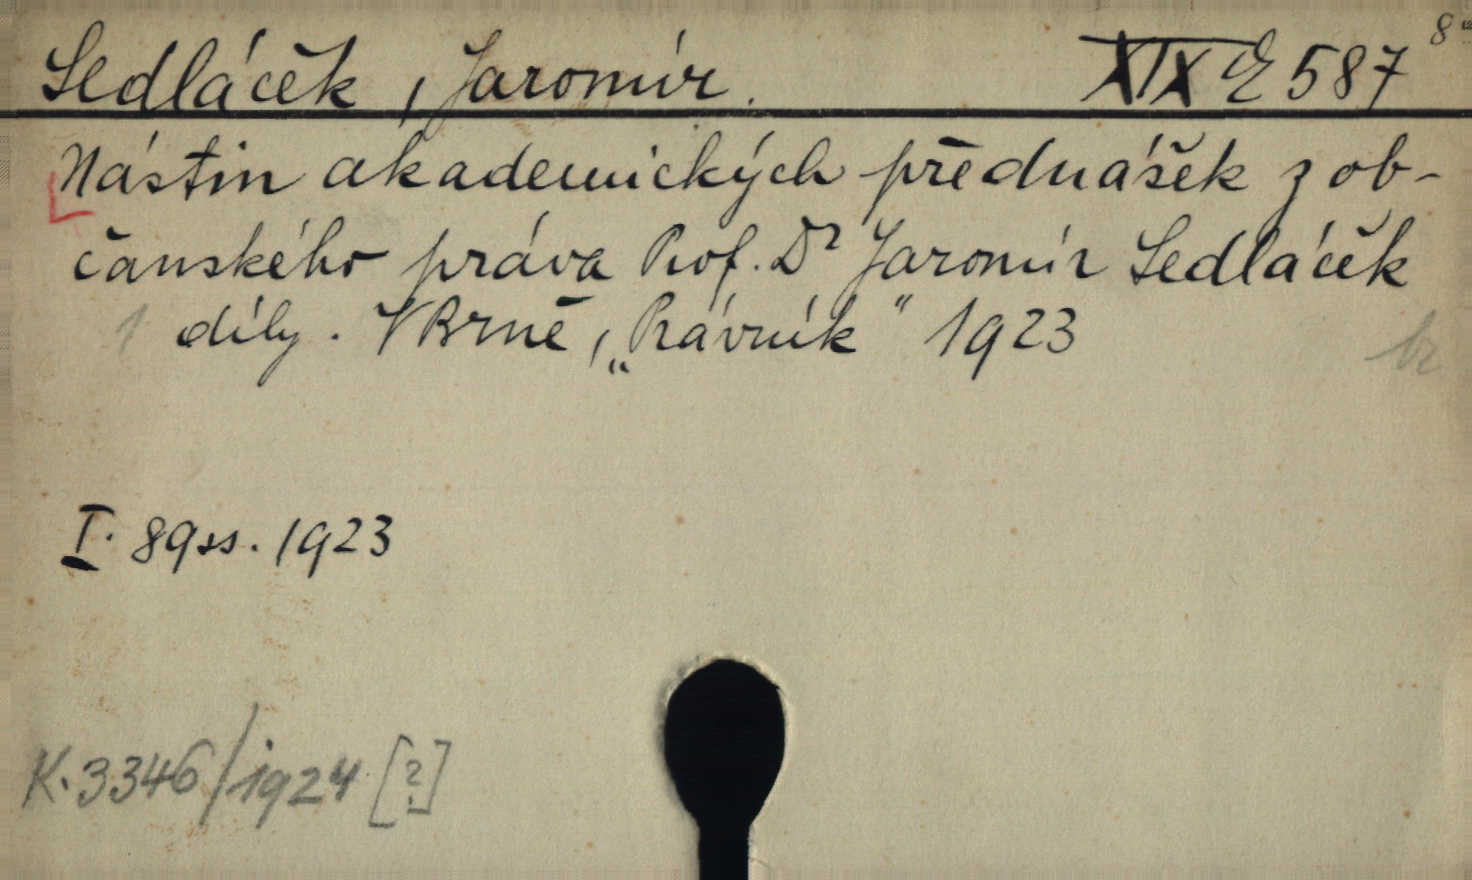 Sedláček, Jaromír. XIX E 587 8°
Nástin akademických přednášek z ob-
čanského práva Prof. Dr Jaromír Sedláček
1 díly. V Brně, „Právník" 1923
br
I. 89 ss. 1923
K. 3346/1924 [?]